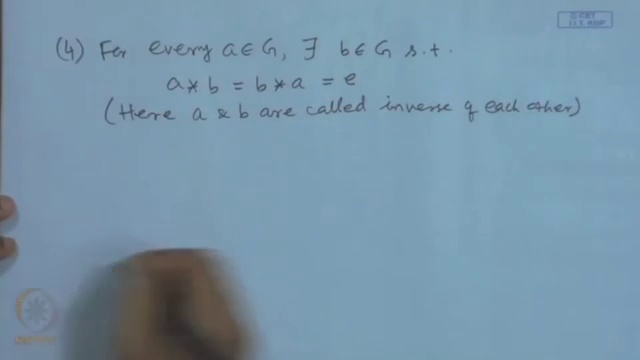 (4) For every a ∈ G, ∃ b ∈ G s.t.
a * b = b * a = e
(Here a & b are called inverse of each other)
© CET
I.I.T. KGP